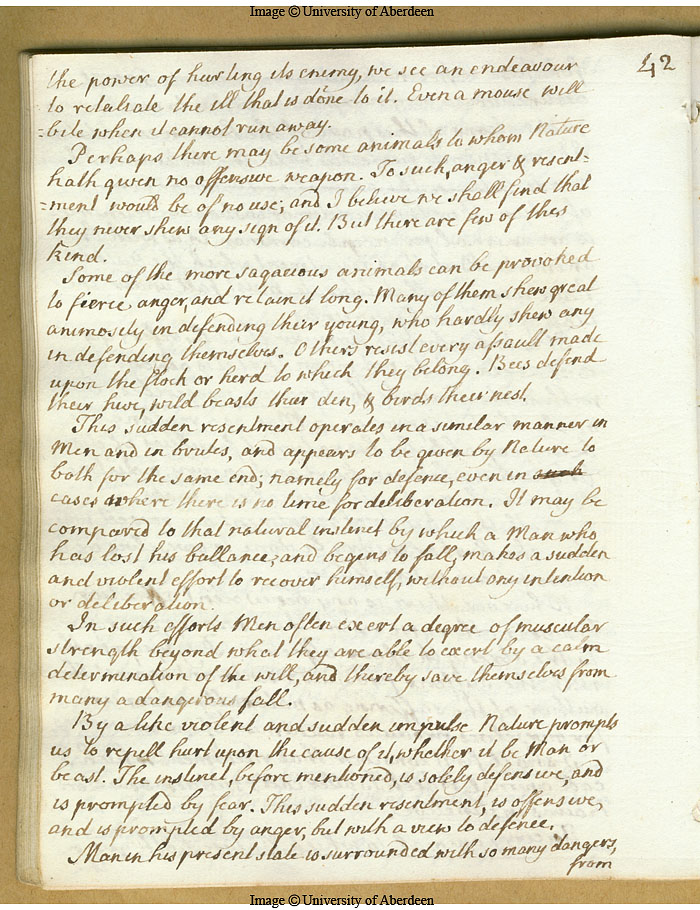 Image © University of Aberdeen
42
the power of hurting its enemy, we see an endeavour
to retaliate the ill that is done to it. Even a mouse will
=bite when it cannot run away.
Perhaps there may be some animals to whom Nature
hath given no offensive weapon. To such, anger & resent=
=ment would be of no use; and I believe we shall find that
they never shew any sign of it. But there are few of this
kind.
Some of the more sagacious animals can be provoked
to fierce anger, and retain it long. Many of them shew great
animosity in defending their young, who hardly shew any
in defending themselves. Others resist every assault made
upon the flock or herd to which they belong. Bees defend
their hive, wild beasts their den, & birds their nest.
This sudden resentment operates in a similar manner in
Men and in brutes, and appears to be given by Nature to
both for the same end; namely for defence, even in such
cases where there is no time for deliberation. It may be
compared to that natural instinct by which a Man who
has lost his ballance, and begins to fall, makes a sudden
and violent effort to recover himself, without any intention
or deliberation.
In such efforts Men often exert a degree of muscular
strength beyond what they are able to exert by a calm
determination of the will, and thereby save themselves from
many a dangerous fall.
By a like violent and sudden impulse Nature prompts
us to repell hurt upon the cause of it, whether it be Man or
beast. The instinct, before mentioned, is solely defensive, and
is prompted by fear. This sudden resentment, is offensive,
and is prompted by anger, but with a view to defence.
Man in his present state is surrounded with so many dangers,
from
Image © University of Aberdeen